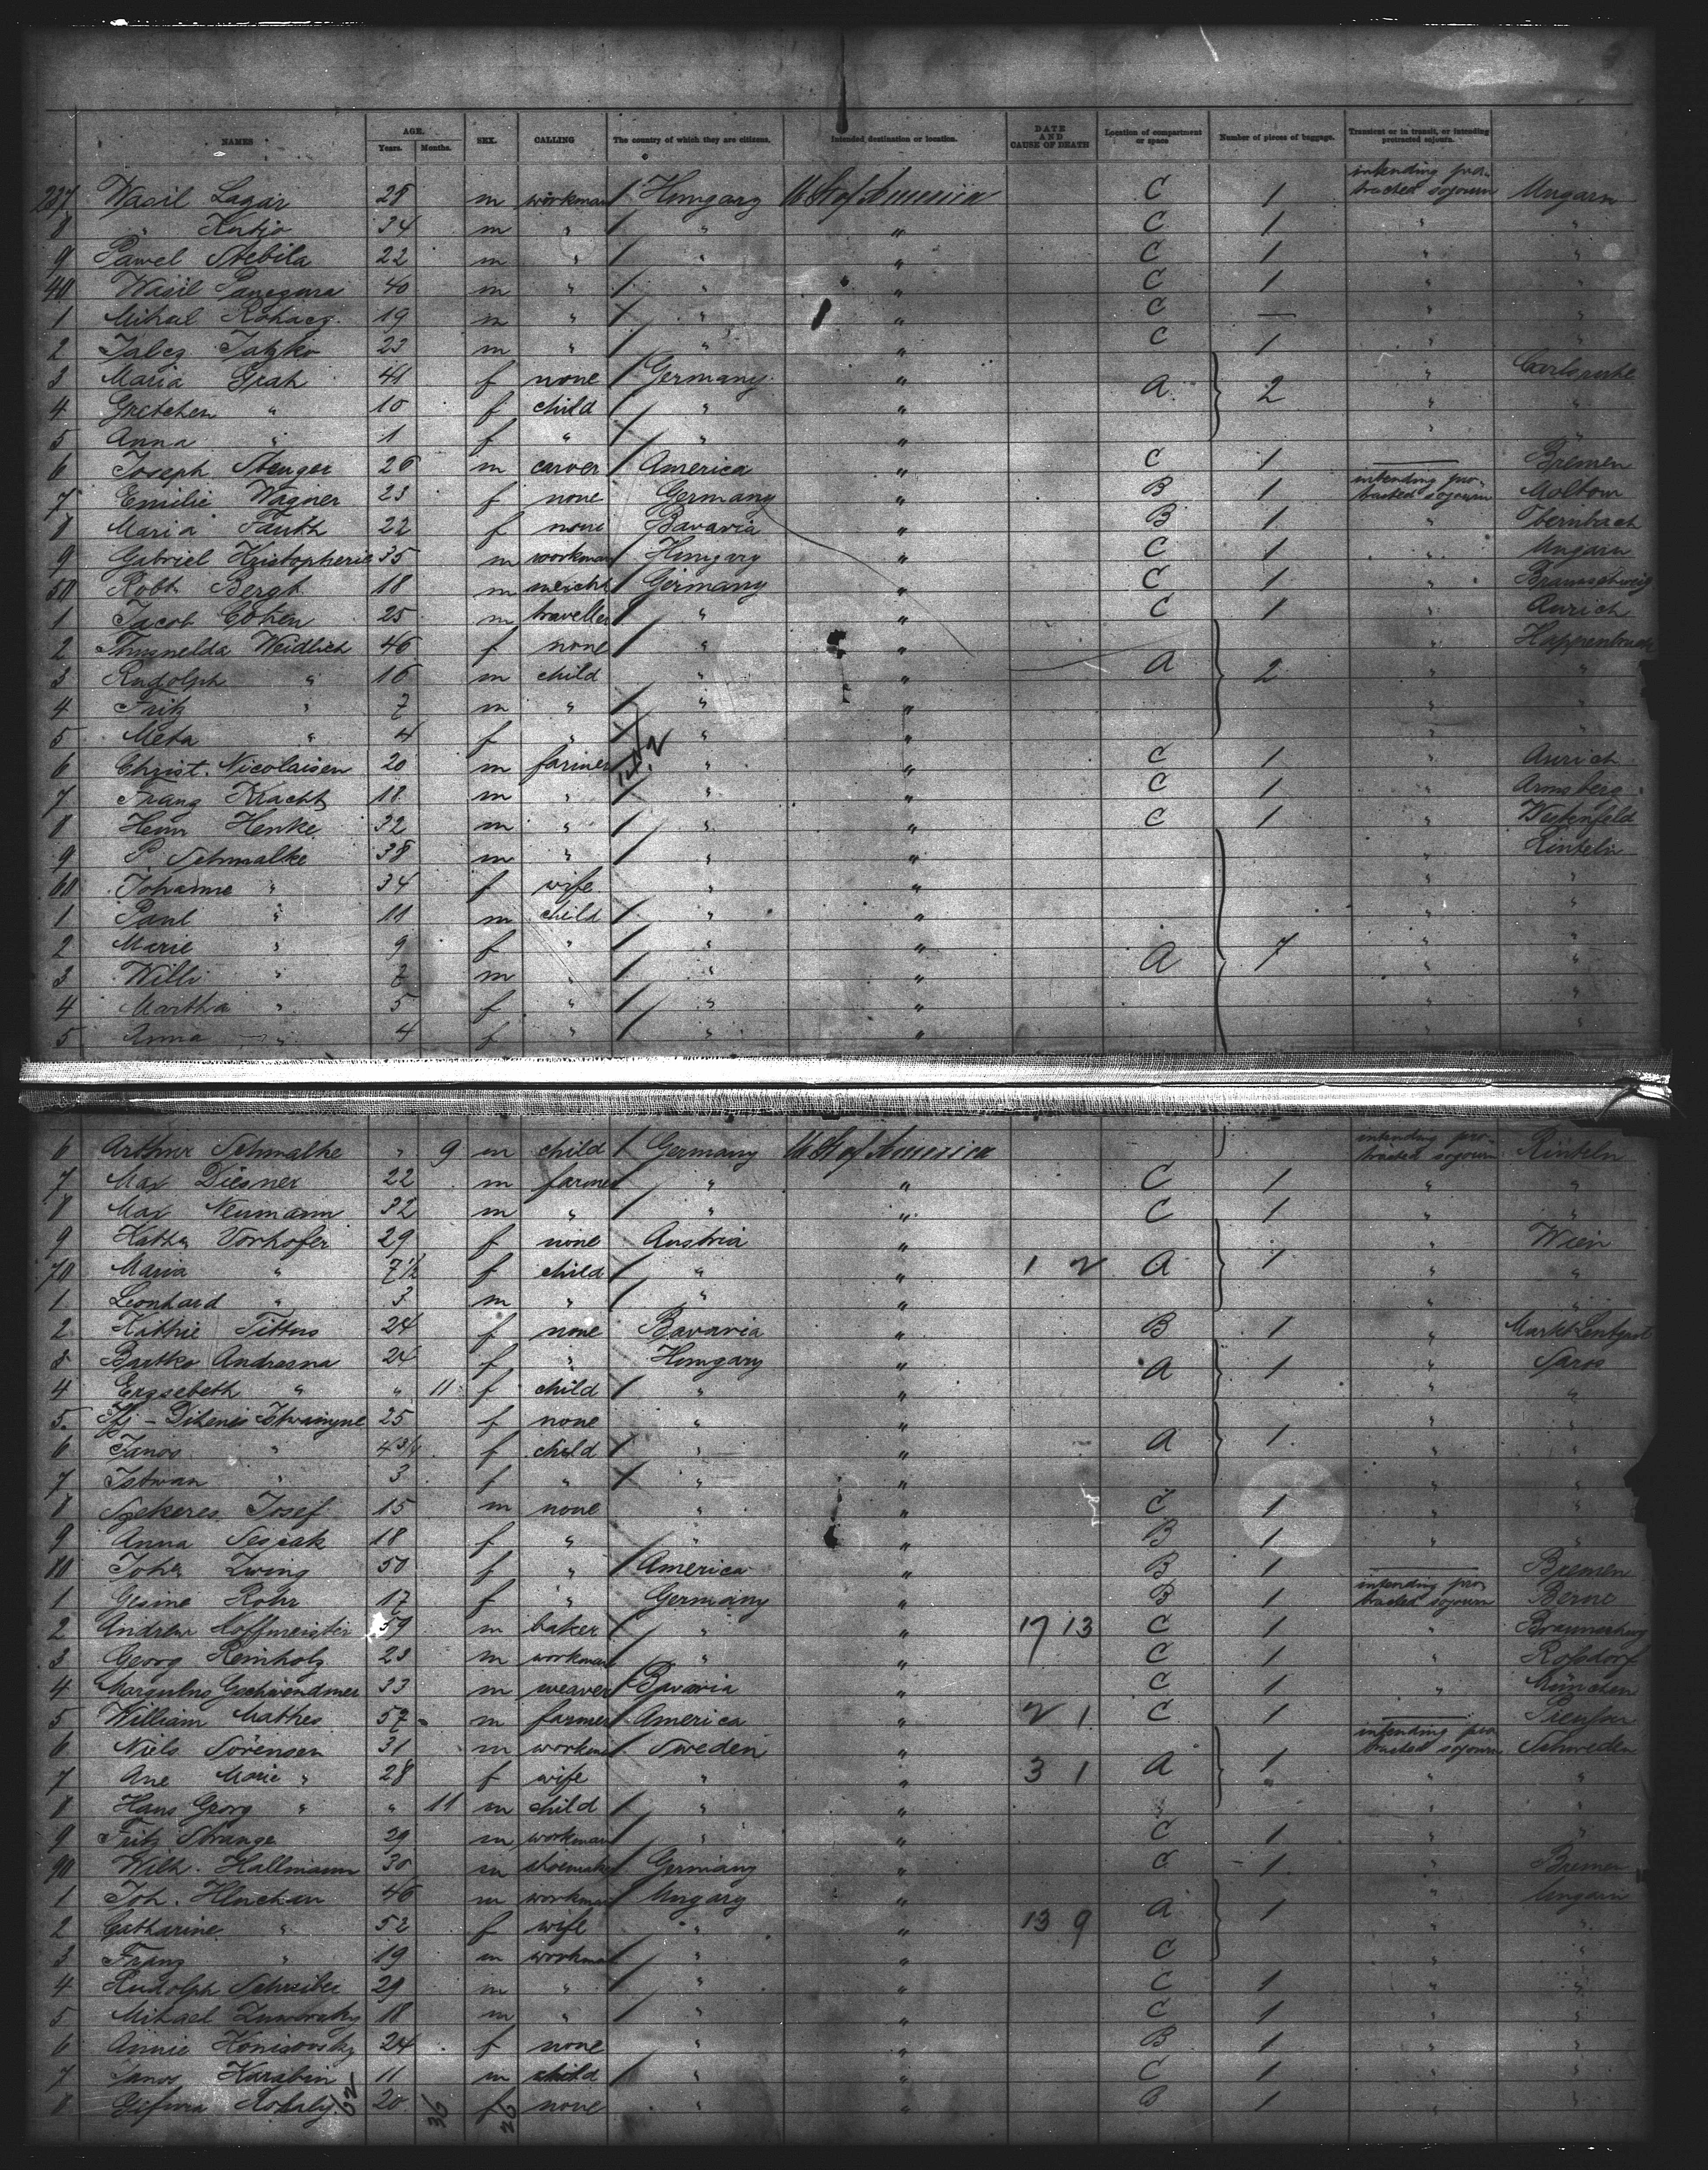 NAMES AGE. Years. Months. SEX. CALLING The country of which they are citizens. Intended destination or location. DATE AND CAUSE OF DEATH Location of compartment or space Number of pieces of baggage. Transient or in transit, or intending protracted sojourn.
237 Wasil Lazar 28 m workman Hungary U St of America C 1 intending protracted sojourn Ungarn
8 " 34 m " " " C 1 " "
9 Pawel Stebila 22 m " " " C 1 " "
40 Wasil 40 m " " " C 1 " "
1 Mihal Rohacz 19 m " " " C — " "
2 23 m " " " C 1 " "
3 Maria Grah 41 f none Germany " A 2 " Carlsruhe
4 Gretchen " 10 f child " " " "
5 Anna " 1 f " " " " "
6 Joseph Stenger 26 m carver America " C 1 — Bremen
7 Emilie Wagner 23 f none Germany " B 1 intending protracted sojourn
8 Maria Fauth 22 f none Bavaria " B 1 " Obernbach
9 Gabriel 35 m workman Hungary " C 1 " Ungarn
50 Robt Bergh 18 m Germany " C 1 " Braunschweig
1 Jacob Cohen 25 m traveller " " C 1 " Aurich
2 Thusnelda Weidlich 46 f none " " A 2 "
3 Rudolph " 16 m child " " " "
4 Fritz " 7 m " " " " "
5 Meta " 4 f " " " " "
6 Christ. Nicolaisen 20 m farmer " " C 1 " Aurich
7 Franz Kracht 18 m " " " C 1 " Arnsberg
8 Heinr Henke 32 m " " " C 1 " Westenfeld
9 P Schmalke 38 m " " " " Rinteln
60 Johanne " 34 f wife " " " "
1 Paul " 11 m child " " " "
2 Marie " 9 f " " " A 7 " "
3 Willi " 7 m " " " " "
4 Martha " 5 f " " " " "
5 Anna " 4 f " " " " "
6 Arthur Schmalke " 9 m child Germany U St of America intending protracted sojourn Rinteln
7 Max Diesner 22 m farmer " " C 1 " "
8 Max Neumann 32 m " " " C 1 " "
9 Kath. Vorhofer 29 f none Austria " A 1 " Wien
70 Maria " 7½ f child " " 1 2 " "
1 Leonhard " 3 m " " " " "
2 Kathie 24 f none Bavaria " B 1 "
3 Bartko Andrasna 24 f " Hungary " A 1 " Saros
4 Erzsebeth " " 11 f child " " " "
5 25 f none " " A 1 " "
6 Janos " f child " " " "
7 Istwan " 3 f " " " " "
8 Szekeres Josef 15 m none " " C 1 " "
9 Anna 18 f " " " B 1 " "
80 Joh. Zwing 50 f " America " B 1 — Bremen
1 Gesine Rohr 17 f " Germany " B 1 intending protracted sojourn Berne
2 Andrew Hoffmeister 59 m baker " " 17 13 C 1 " Braunschweig
3 Georg Reinholz 23 m workman " " C 1 " Roßdorf
4 Gschwendner 33 m weaver Bavaria " C 1 " München
5 William Mathes 57 m farmer America " 2 1 C 1 —
6 Niels Sörensen 31 m workman Sweden " A 1 intending protracted sojourn Schweden
7 Ane Marie " 28 f wife " " 3 1 " " "
8 Hans Georg " " 11 m child " " " "
9 Fritz Strange 29 m workman " " C 1 " "
90 Wilh. Hallmann 30 m shoemaker Germany " C 1 " Bremen
1 Joh. Hluchan 46 m workman Ungary " A 1 " Ungarn
2 Catharine " 52 f wife " " 13 9 " "
3 Franz " 19 m workman " " C " "
4 Rudolph Schreiber 29 m " " " C 1 " "
5 Mihael 18 m " " " C 1 " "
6 Annie 24 f none " " B 1 " "
7 Janos Karabin 11 m child " " C 1 " "
8 20 f none " " B 1 " "
62 36 26